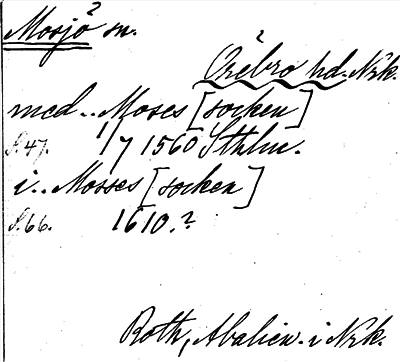 Mosjö² sn.
Örebro² hd. Nrk.
med.. Moses [socken]
S.47. 1/7 1560 Sthlm.
i.. Mosses [socken]
S.66. 1610.?
Roth, i Nrk.